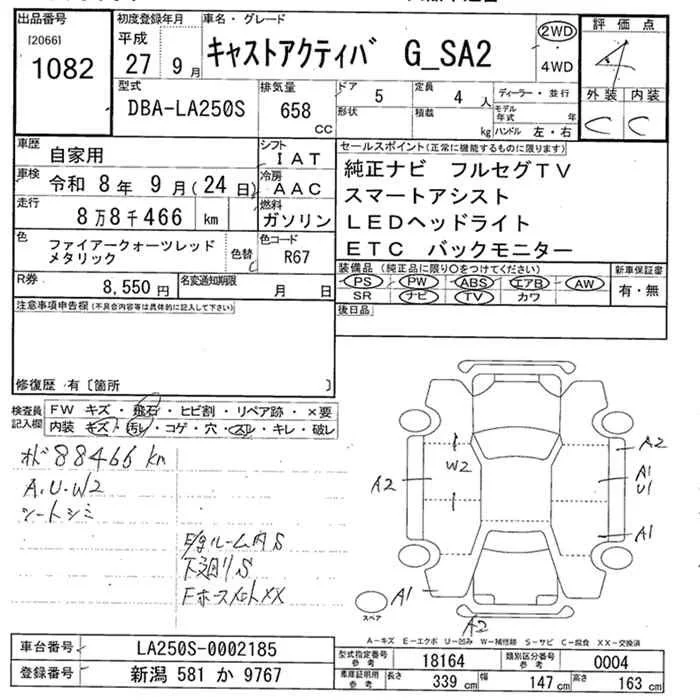 出品番号
[2066]
1082
初度登録年月
平成
27 9月
車名・グレード
キャストアクティバ G_SA2
2WD
4WD
評価点
4
外装 内装
C C
型式
DBA-LA250S
排気量
658
cc
ドア
5
定員
4人
形状
積載
kg
ディーラー・並行
モデル年式 年
ハンドル 左・右
車歴
自家用
シフト
IAT
車検
令和 8年 9月(24日)
冷房
AAC
走行
8万8千466 km
燃料
ガソリン
色
ファイアークォーツレッド
メタリック
色替
色コード
R67
R券
8,550円
名変通知期限
月 日
セールスポイント(正常に機能するものに限ります)
純正ナビ フルセグTV
スマートアシスト
LEDヘッドライト
ETC バックモニター
装備品 (純正品に限り○をつけてください)
PS PW ABS エアB AW
SR ナビ TV カワ
新車保証書
有・無
後日品
注意事項申告欄(不具合内容等は具体的に記入して下さい)
修復歴 有〔箇所 〕
検査員
記入欄
FW キズ・飛石・ヒビ割・リペア跡・×要
内装 キズ・汚レ・コゲ・穴・スレ・キレ・破レ
オド 88466 km
A.U.W2
シートシミ
E/gルーム内S
下廻りS
A2
W2
A2
A1
U1
A1
A1
A2
スペア
A-キズ E-エクボ U-凹み W-補修跡 S-サビ C-腐食 XX-交換済
車台番号
LA250S-0002185
登録番号
新潟 581 か 9767
型式指定番号
参考
18164
類別区分番号
参考
0004
車庫証明用
参考
長さ
339 cm
幅
147 cm
高さ
163 cm